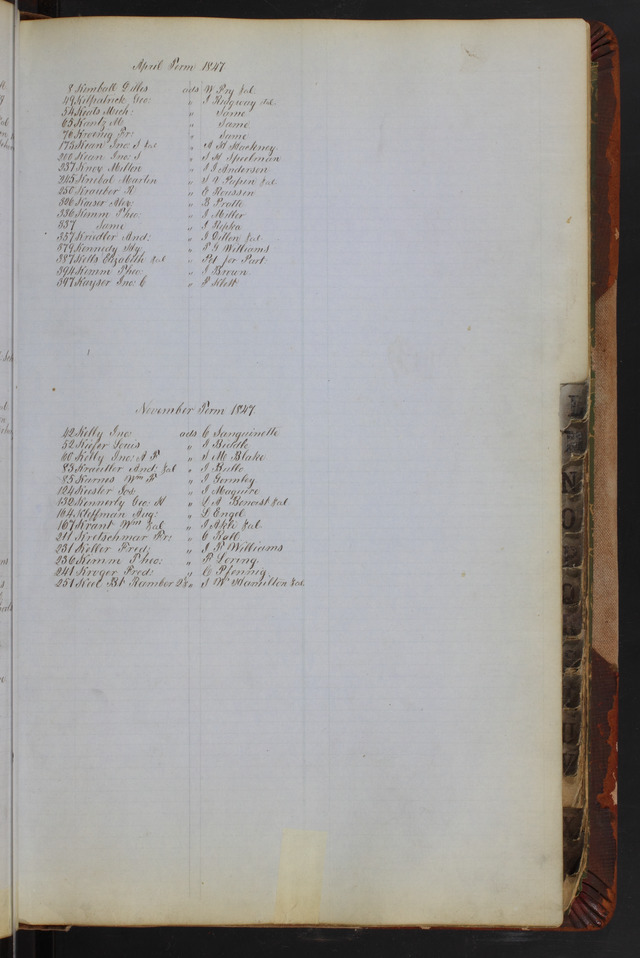 April Term 1847
8 Kimball Gilles ads W Pry &al
49 Kilpatrick Geo: " J Ridgway &al
54 Keats Mich: " Same
65 Kantz M " Same
76 Kroenig Fr: " Same
175 Kean Jno: S &al " A H Mackney
200 Kean Jno: S " J H Speelman
237 Knox Milton " J J Anderson
245 Knibal Martin " S F Papin &al
250 Krauber H " C Rousson
306 Kaiser Alex: " B Pratte
336 Kimm Theo: " J Miller
337 Same " J Repka
357 Krudler And: " J Dillon &al
379 Kennedy My: " P G Williams
387 Kells Elizabeth &al " Pet for Part
394 Kemm Theo: " J Brown
397 Kayser Jno: C " P Klett
November Term 1847
42 Kelly Jno: ads C Sanguinette
52 Kiefer Louis " J Biddle
60 Kelly Jno: A F " S Mc Blake
83 Krautler And: &al " J Bulte
85 Karnes Wm P " J Gormley
124 Keisler Jos: " J Maguire
152 Kennerly Geo: H " L A Benoist &al
164 Kleffman Aug: " L Engel
167 Krant Wm &al " J Able &al
211 Kretschmar Fr: " C Roll
231 Keller Fred: " J P Williams
236 Kemm Theo: " P Loring
241 Kroger Fred: " C Pfennig
251 Keel Bt Rambler &c " J W Hamilton &al
L
M
N
O